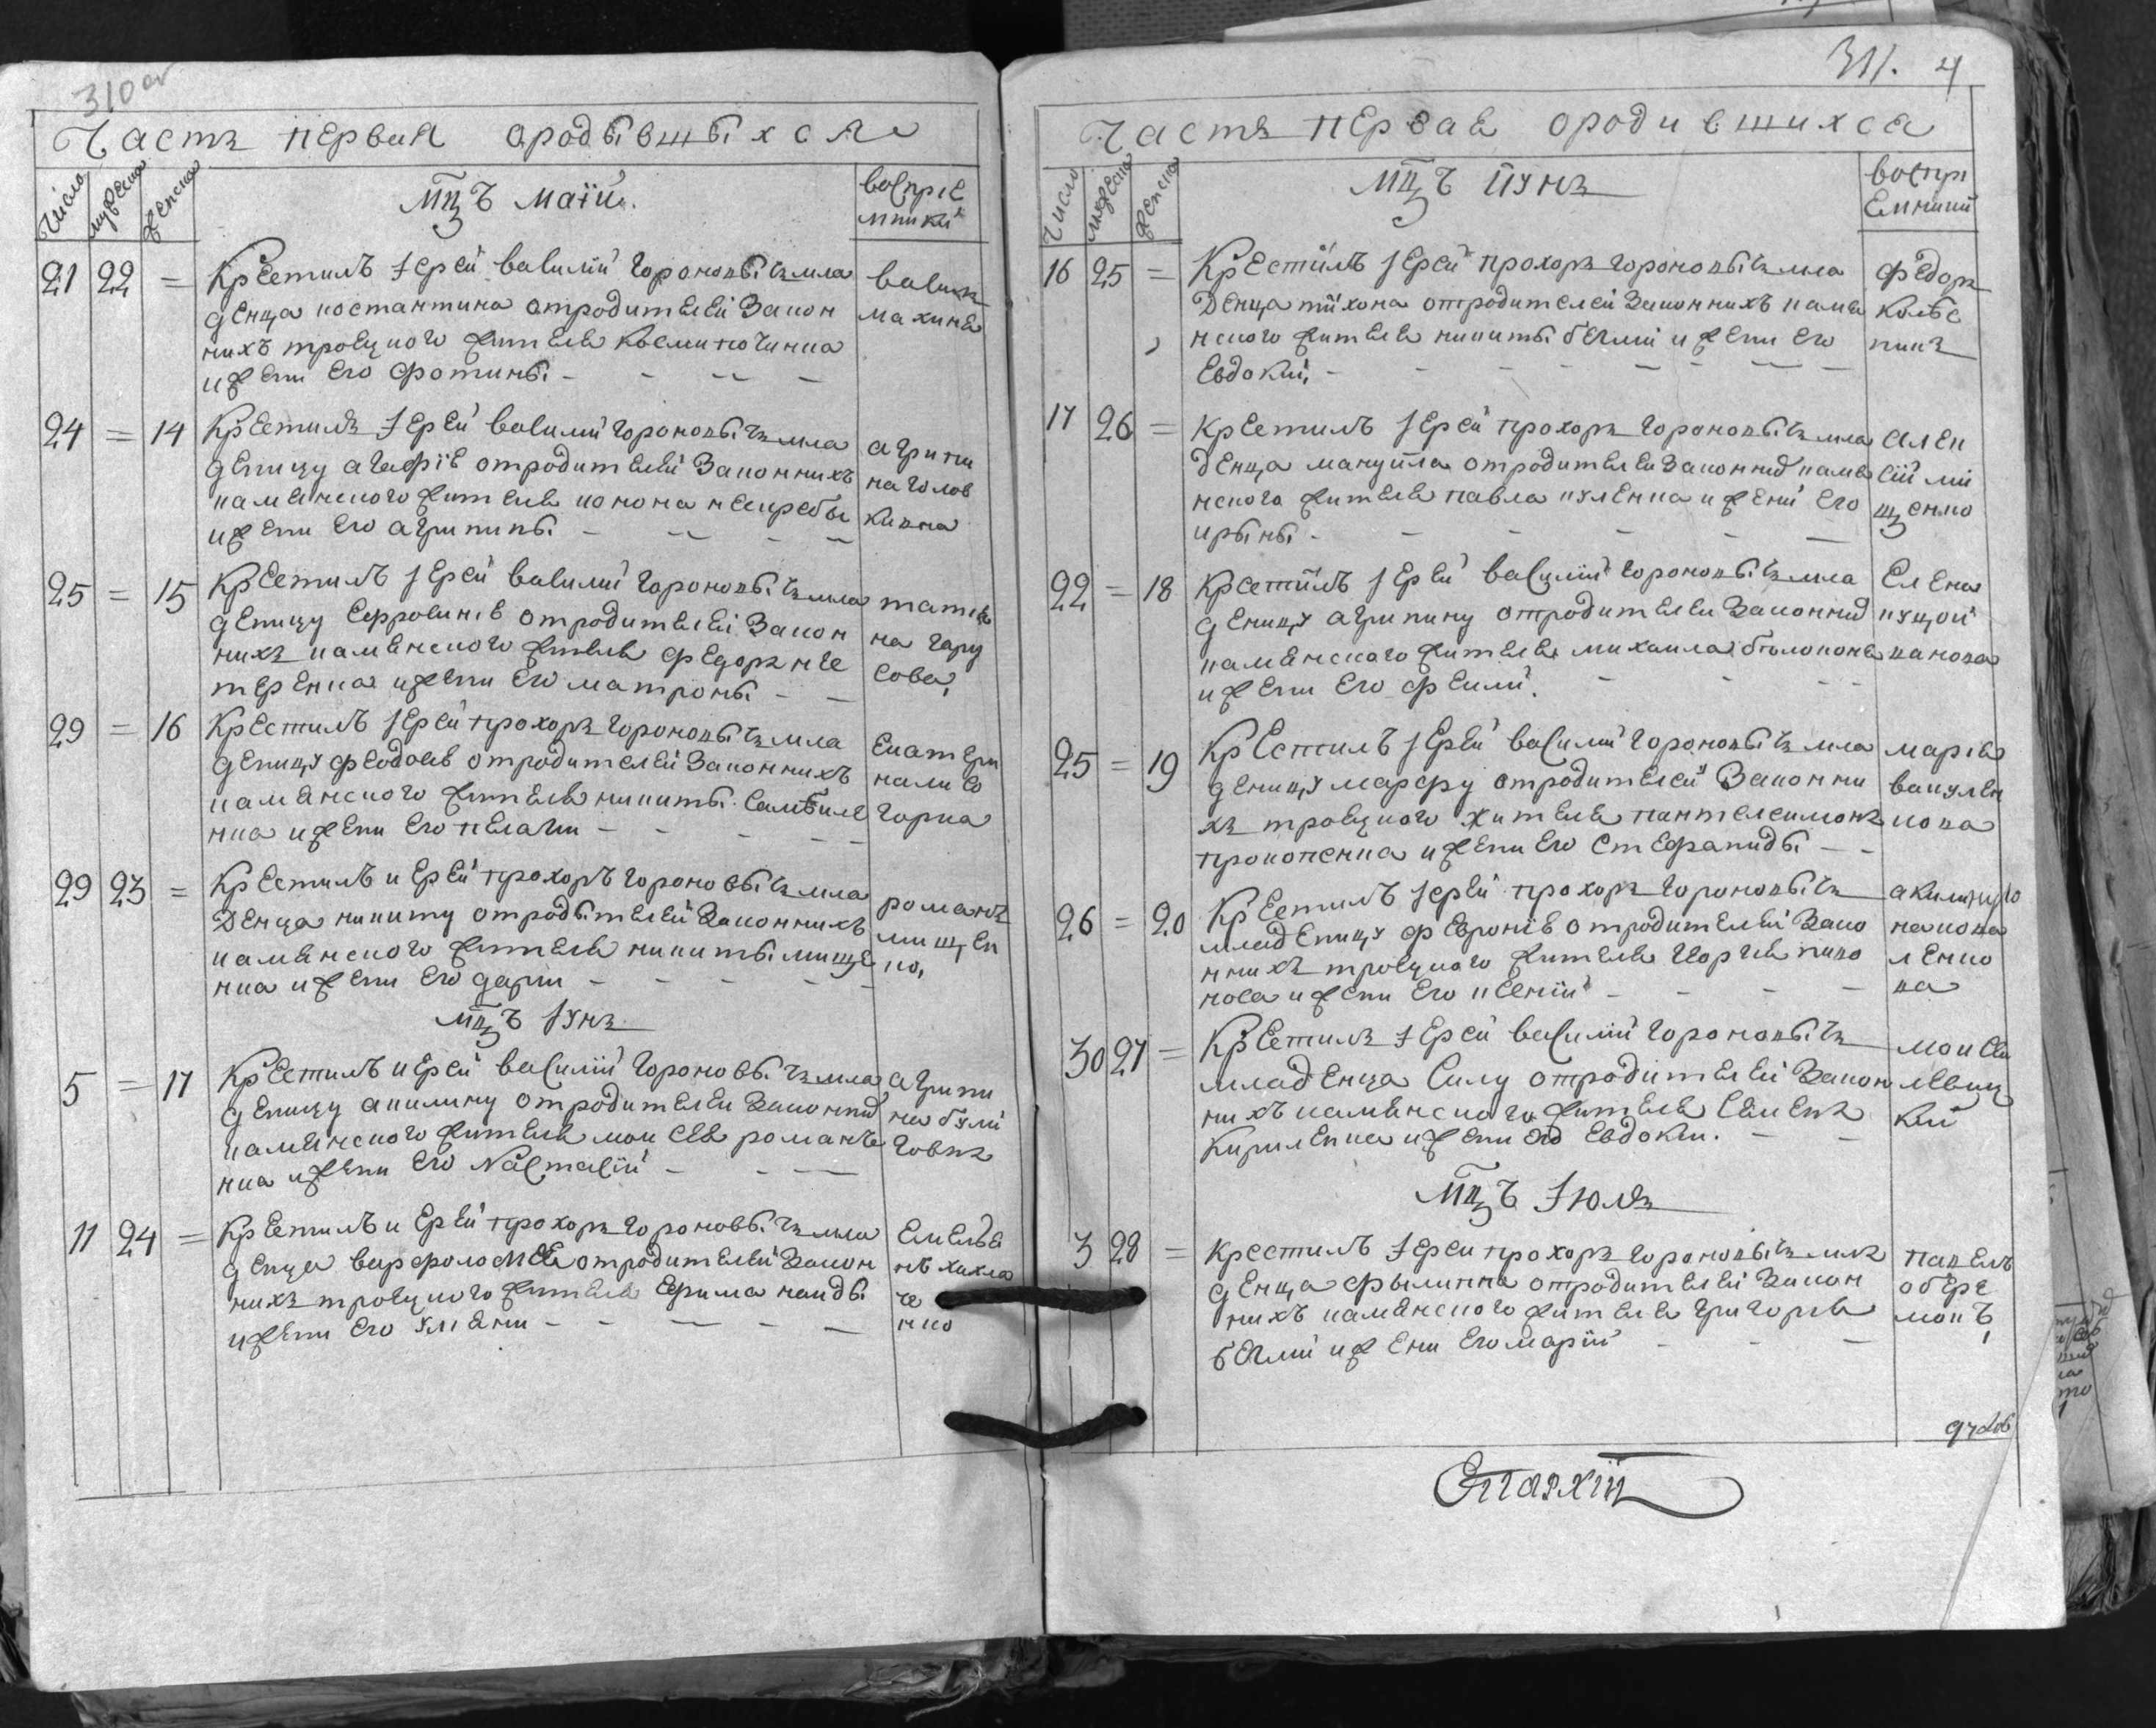 310 об
Часть первая ородывшыхся
Число мужеска женска
Мцъ маїй
воспріе
мники
21 22 = Крестилъ Іерей василий Гороновычъ мла
денца костантина отродителей Закон
нихъ троецкого жителя
ижени его фотины
васил
махиня
24 = 14 Крестилъ Іерей василий Гороновычъ мла
деницу агафію отродителей Законнихъ
каменского жителя конона
ижени его агрипины
агрипи
на голов
кивна
25 = 15 Крестилъ Іерей василий Гороновычъ мла
деницу ефросинію отродителей Закон
нихъ каменского жителя федора не
теренка ижени его матроны
татія
на гару
сова
29 = 16 Крестилъ Іерей прохоръ Гороновычъ мла
деницу феодосію отродителей Законнихъ
каменского жителя никиты самойле
нка ижени его пелагии
екатери
на лисо
горка
29 23 = Крестилъ иерей прохоръ Гороновычъ мла
денца никиту отродытелей Законнихъ
каменского жителя никиты мище
нка ижени его дарии
романъ
мищен
ко
мцъ Іунъ
5 = 17 Крестилъ иерей василій Гороновычъ мла
деницу акилину отродителей Законних
каменского жителя моисея романе
нка ижени его Настасій
агрипи
на були
говна
11 24 = Крестилъ иерей прохоръ Гороновычъ мла
денца варфоломея отродителей Закон
нихъ троецкого жителя Ефима найды
ижени его улияни
Емелья
нъ хахла
че
нко
311. 4
Часть первая ородившихся
Число мужеска женска
Мцъ йунъ
воспрі
емники
16 25 = Крестилъ Іерей прохоръ Гороновычъ мла
денца тихона отродителей Законнихъ каме
нского жителя никиты беглій ижени его
Евдокий
федоръ
колѣс
никъ
17 26 = Крестилъ Іерей прохоръ Гороновычъ мла
денца мануйла отродителей Законнихъ каме
нского жителя павла куленка ижени его
ирыны
алек
сій ми
щенко
22 = 18 Крестилъ Іерей василій Гороновычъ мла
деницу агрипину отродителей Законних
каменского жителя михаила білоконя
ижени его феклы
Елена
куцой
конова
25 = 19 Крестилъ Іерей василий Гороновычъ мла
деницу марфу отродителей Законни
хъ троецкого жителя пантелеимона
прокопенка ижени его Стефаниды
марія
вакулен
кова
26 = 20 Крестилъ Іерей прохоръ Гороновычъ
младеницу февронію отродителей Зако
ннихъ троецкого жителя Георгія пиво
носа ижени его ксенїи
акилина
ленко
ва
30 27 = Крестилъ Іерей василій Гороновычъ
младенца Силу отродителей Закон
нихъ каменского жителя Семена
Кириленка ижени его Евдокии
моисей
левиц
кий
Мцъ Іюлъ
3 28 = Крестилъ Іерей прохоръ Гороновычъ мла
денца филиппа отродителей Закон
нихъ каменского жителя григория
беглій ижени его марій
павелъ
обере
мокъ